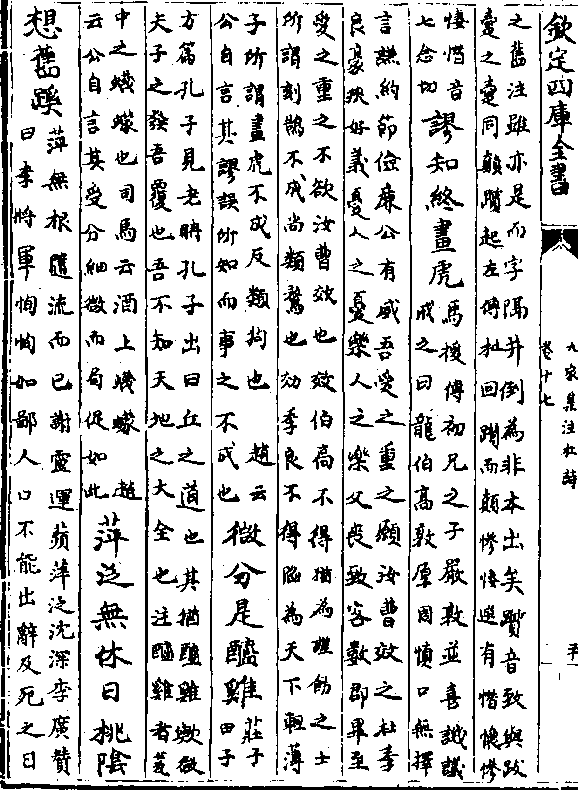 欽定四庫全書
九家集注杜詩
卷十七
之舊注雖亦是而字隔并倒為非本出矣躓音致與跋
疐之疐同顛躓起左傳杜回躓而顛慘悽選有惜悽慘
悽惜音
七念切謬知終畫虎馬援傳初兄之子嚴敦並喜譏議
戒之曰龍伯高敦厚周慎口無擇
言謙約節儉廉公有威吾愛之重之願汝曹效之杜季
良豪俠好義憂人之憂樂人之樂父喪致客數郡畢至
愛之重之不欲汝曹效也效伯高不得猶為謹飭之士
所謂刻鵠不成尚類鶩也効季良不得陷為天下輕薄
子所謂畫虎不成反類狗也 趙云
公自言其謬誤所知而事之不成也微分是醯雞莊子
田子
方篇孔子見老聃孔子出曰丘之道也其猶醯雞歟微
夫子之發吾覆也吾不知天地之大全也注醯雞者甕
中之蠛蠓也司馬云酒上蠛蠓 趙
云公自言其受分細微而局促如此萍泛無休日桃陰
想舊蹊萍無根隨流而已謝靈運蘋萍泛沈深李廣贊
曰李將軍恂恂如鄙人口不能出辭及死之日